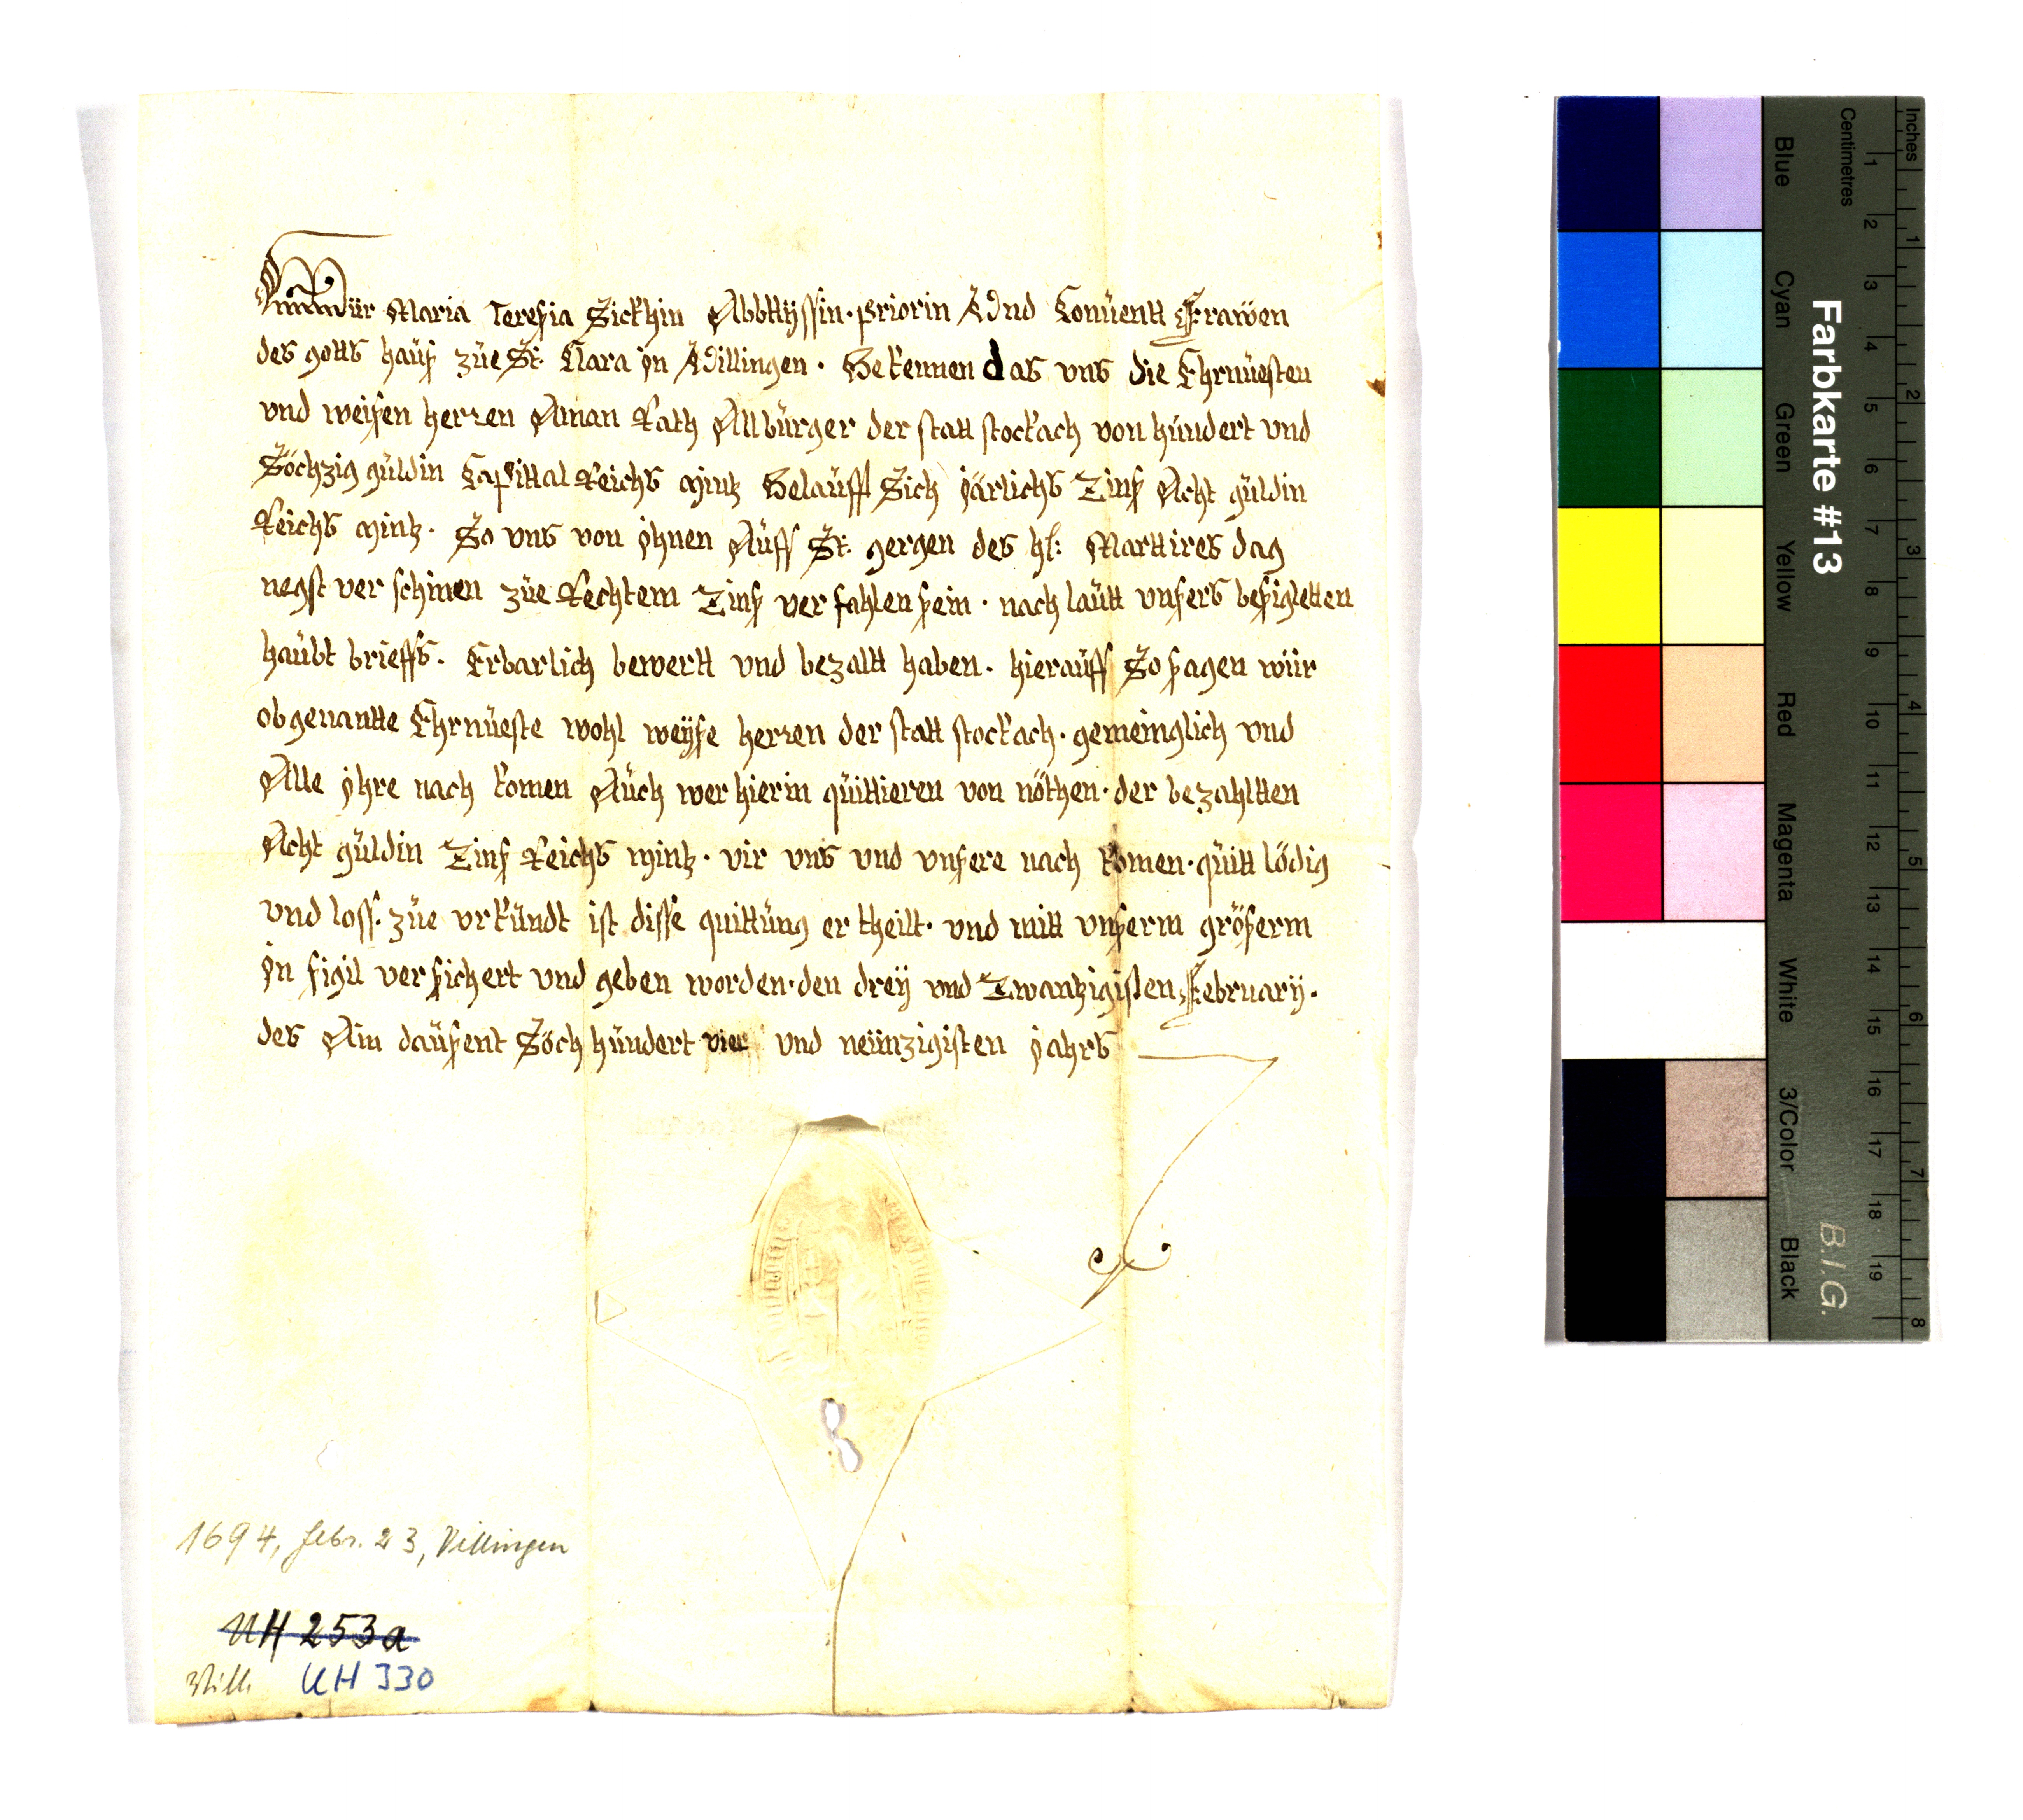 Wür Maria Teresia Sickhin Abbttyssin. priorin Vnd Conuentt Frawen
des gotts hauß züe St. Clara jn Villingen. Bekennen das vns die Ehrnüesten
vnd weisen herren Aman Rath All bürger der statt stockach von hundert vnd
Söchzig güldin Capittal Reichs mintz Belaufft Sich järlichs Zinß Acht güldin
Reichs mintz. So vns von jhnen Auff St: gergen des hl: Marttires dag
negst ver schinen züe Rechtem Zinß ver fahlen sein. nach lautt vnsers besigletten
haubt brieffs. Erbarlich bewertt vnd bezaltt haben. hierauff So sagen wür
obgenantte Ehrnüeste wohl weyse herren der statt stockach. gemeinglich vnd
Alle jhre nach komen Auch wer hierin quittieren von nöthen. der bezahltten
Acht güldin Zinß Reichs mintz. vir vns vnd vnsere nach komen. quitt lödig
vnd loss. züe vrkundt ist disse quittung er theilt. vnd mitt vnserm größerm
jn sigil ver sichert vnd geben worden. den drey vnd Zwantzigisten February.
des Ain dausent Söch hundert vier vnd neünzigisten jahrs
1694, Febr. 23, Villingen
UH 253a
Vill. UH 330
Farbkarte #13
B.I.G.
Inches 1 2 3 4 5 6 7 8
Centimetres 1 2 3 4 5 6 7 8 9 10 11 12 13 14 15 16 17 18 19
Blue Cyan Green Yellow Red Magenta White 3/Color Black